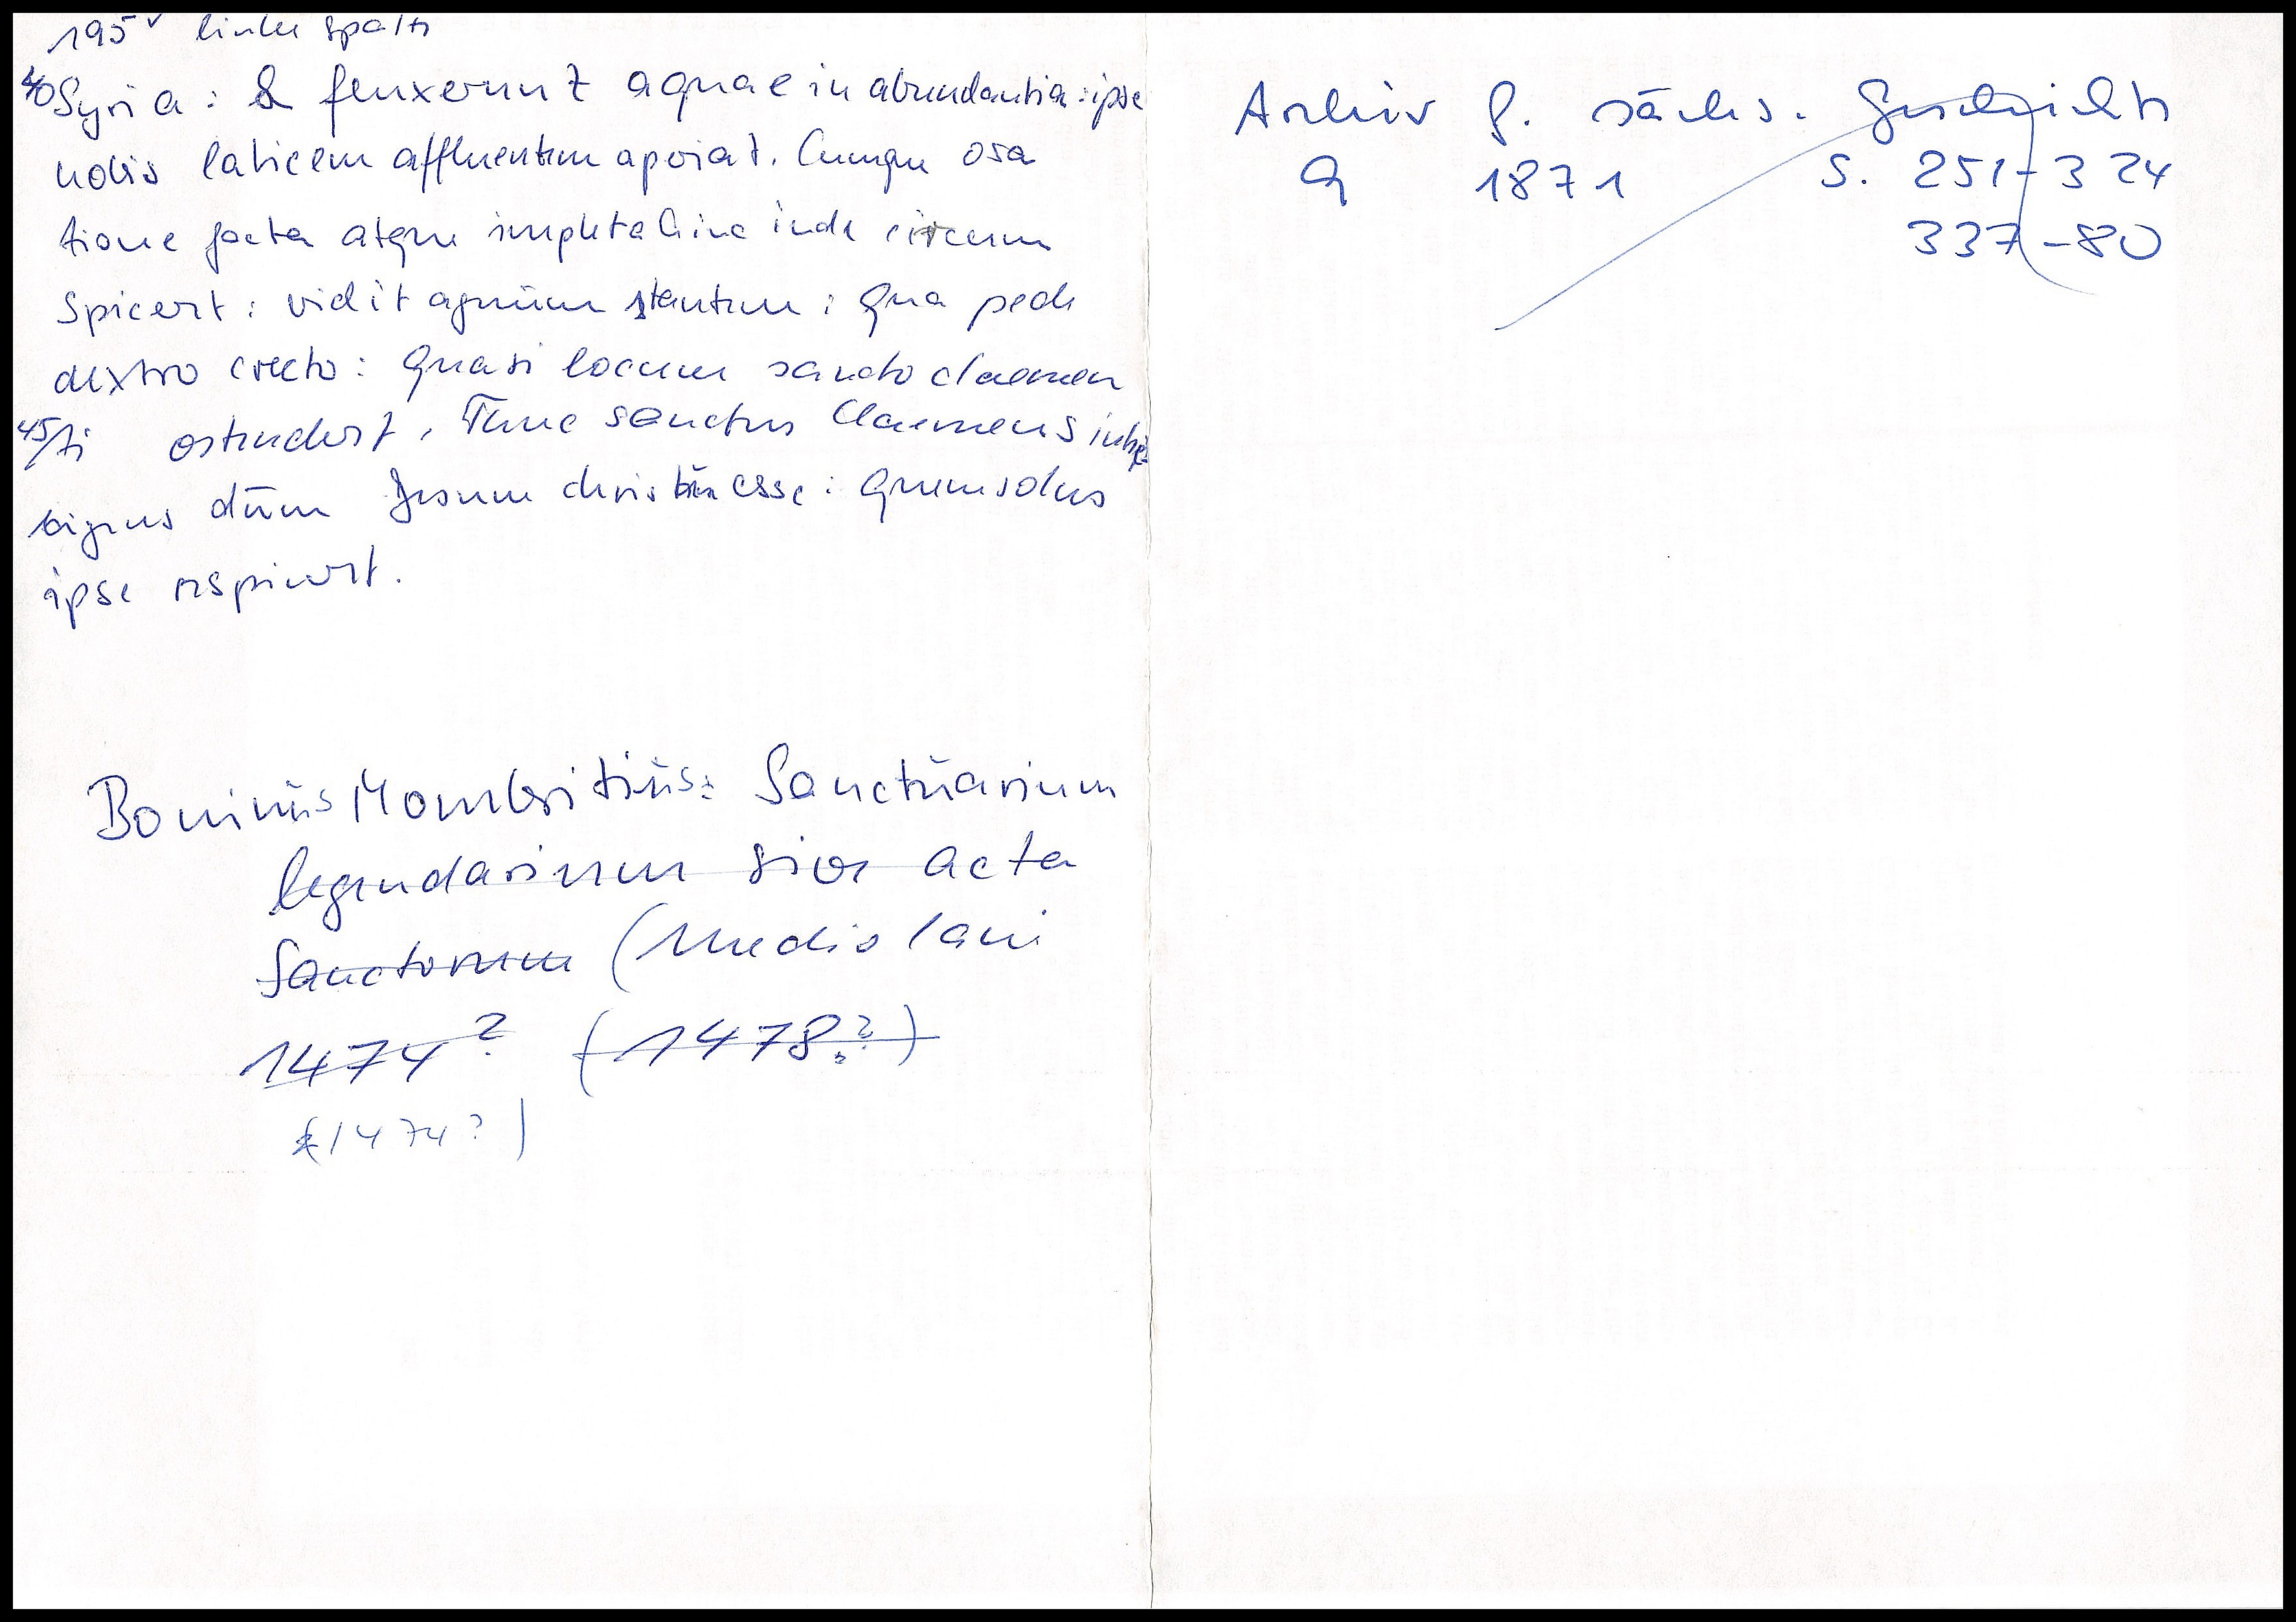 195v linke Spalte
40 Syria : & fluxerunt aquae in abundantia : ipse
nobis laticem affluentem aperiat. Cumque ora
tione facta atque impleta hinc inde circum
spiceret : vidit agnum stantem : qua pede
dextro erecto : quasi locum sancto claemen
45/ti ostenderet. Tunc sanctus Claemens intelle
dūm Jesum christūm esse : quem solus
ipse respiceret.
Boninus Mombritius: Sanctuarium
legendarium sive acta
Sanctorum (Mediolani
1474? (1478?)
(1474?)
Archiv f. sächs. Geschichte
9 1871 S. 251-324
337-80